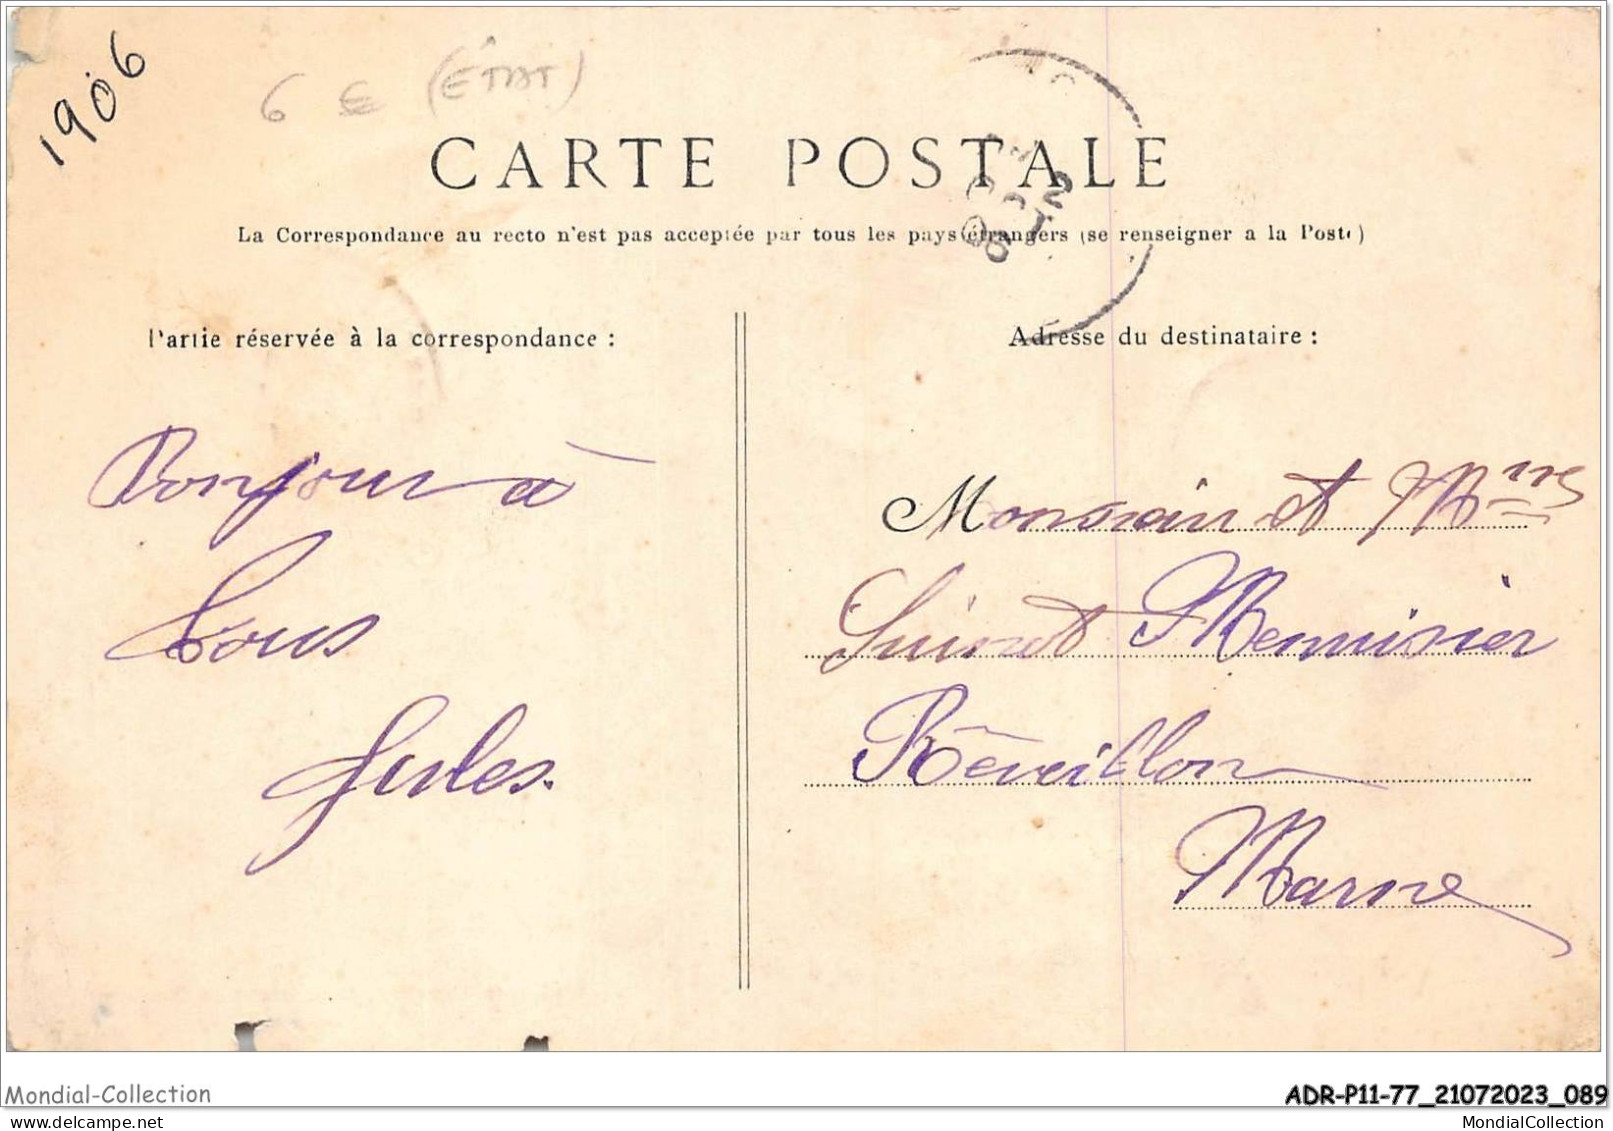 1906
6 € (ÉTAT)
CARTE POSTALE
2
OCT
06
La Correspondance au recto n'est pas acceptée par tous les pays étrangers (se renseigner a la Poste)
Partie réservée à la correspondance :
Adresse du destinataire :
Bonjour à
Tous
Jules.
Monsieur et Mme
Suinot Menuisier
Réveillon
Marne
Mondial-Collection
ADR-P11-77_21072023_089
mondial-collection
MondialCollection